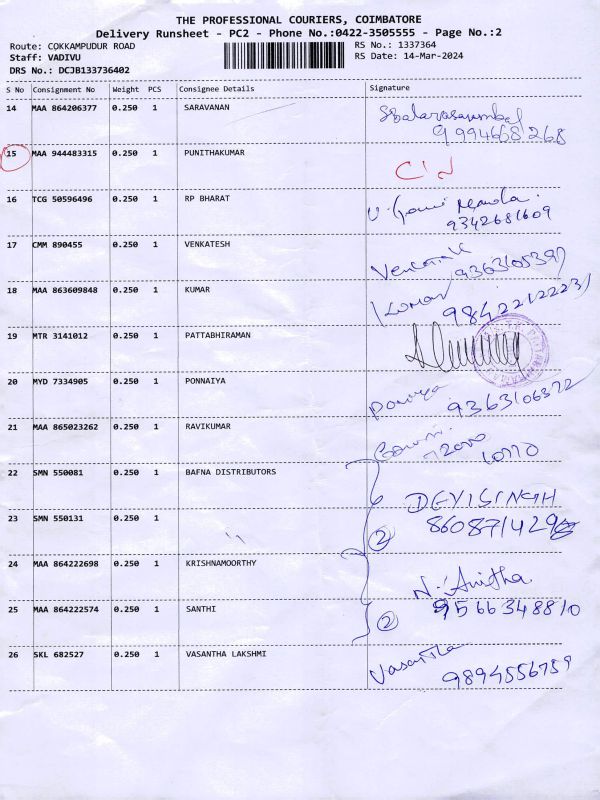 THE PROFESSIONAL COURIERS, COIMBATORE
Delivery Runsheet - PC2 - Phone No.:0422-3505555 - Page No.:2
Route: COKKAMPUDUR ROAD RS No.: 1337364
Staff: VADIVU RS Date: 14-Mar-2024
DRS No.: DCJB133736402
S No Consignment No Weight PCS Consignee Details Signature
14 MAA 864206377 0.250 1 SARAVANAN
9994668268
15 MAA 944483315 0.250 1 PUNITHAKUMAR
16 TCG 50596496 0.250 1 RP BHARAT
9342681609
17 CMM 890455 0.250 1 VENKATESH
18 MAA 863609848 0.250 1 KUMAR Kumar
19 MTR 3141012 0.250 1 PATTABHIRAMAN
20 MYD 7334905 0.250 1 PONNAIYA
9363106322
21 MAA 865023262 0.250 1 RAVIKUMAR
22 SMN 550081 0.250 1 BAFNA DISTRIBUTORS
DEVISINGH
23 SMN 550131 0.250 1
2
24 MAA 864222698 0.250 1 KRISHNAMOORTHY
N. Anitha
25 MAA 864222574 0.250 1 SANTHI 9566348810
2
26 SKL 682527 0.250 1 VASANTHA LAKSHMI Vasantha
9894556759